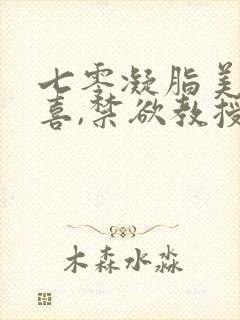 七零凝脂美
喜,禁欲教授
木森水淼